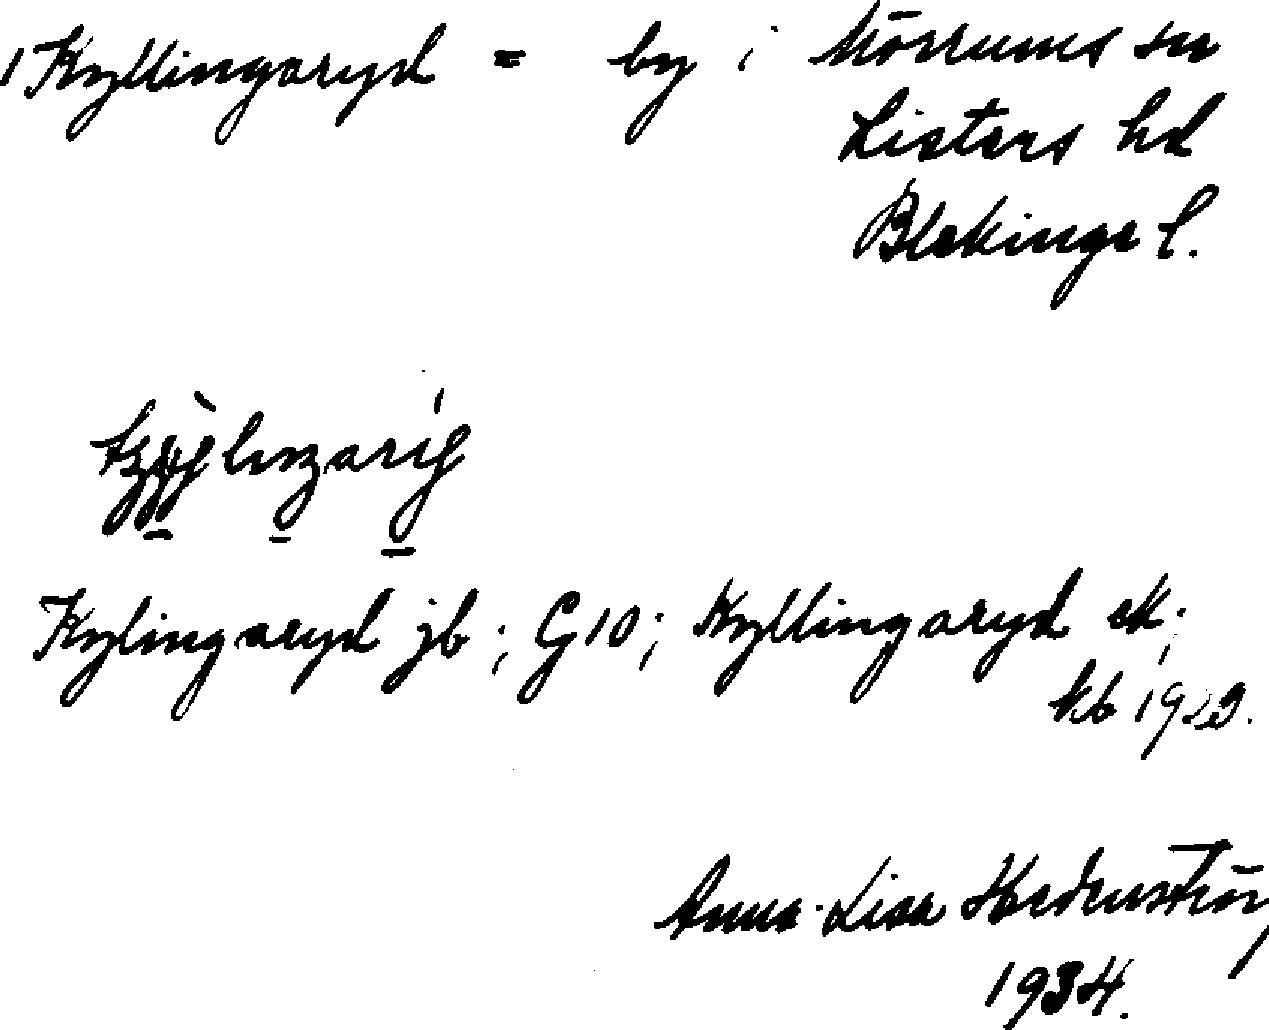 1 Kyllingaryd = by i Mörrums sn
Listers hd
Blekinge l.
Kylingaryd jb; G10; Kyllingaryd ek;
kb 1923.
Anna-Lisa Hedenström
1934.